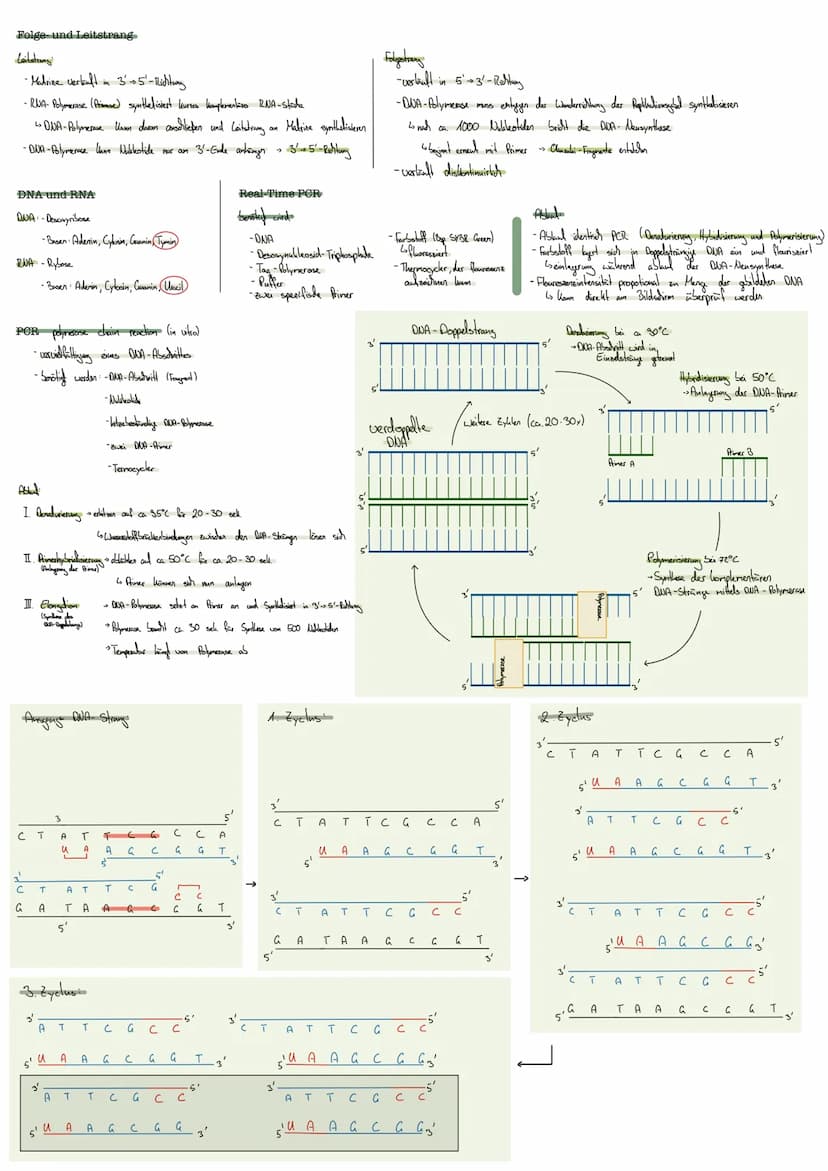 Folge- und Leitstrang
Leitstrang:
- Matrize verläuft in 3'→5'-Richtung
- RNA-Polymerase (Primase) synthetisiert kurzes komplementäres RNA-Stück
↳ DNA-Polymerase kann daran anschließen und Leitstrang an Matrize synthetisieren
- DNA-Polymerase kann Nukleotide nur am 3'-Ende anhängen → 3'→5'-Richtung
Folgestrang
- verläuft in 5'→3'-Richtung
- DNA-Polymerase muss entgegen der Wanderrichtung der Replikationsgabel synthetisieren
↳ nach ca 1000 Nukleotiden bricht die DNA-Neusynthese
↳ beginnt erneut mit Primer → Okazaki-Fragmente entstehen
- verläuft diskontinuierlich
DNA und RNA
DNA: - Desoxyribose
- Basen: Adenin, Cytosin, Guanin, Tymin
RNA - Rybose
- Basen: Adenin, Cytosin, Guanin, Uracil
Real-Time PCR
benötigt wird
- DNA
- Desoxynukleosid-Triphosphate
- Taq-Polymerase
- Puffer
- zwei spezifische Primer
- Farbstoff (Bsp SYBR Green)
↳ fluoresziert
- Thermocycler, der Fluoreszenz
aufzeichnen kann
Ablauf
- Ablauf identisch PCR (Denaturierung, Hybridisierung und Polymerisierung)
- Farbstoff lagert sich in Doppelsträngige DNA ein und fluoresziert
↳ einlagerung während ablauf der DNA-Neusynthese
- Fluoreszenzintensität propotional zu Menge der gebildeten DNA
↳ kann direkt am Bildschirm überprüft werden
PCR polymerase chain reaction (in vitro)
- vervielfältigung eines DNA-Abschnittes
- benötigt werden: - DNA-Abschnitt (Fragment)
- Nukleotide
- hitzebeständige DNA-Polymerase
- zwei DNA-Primer
- Termocycler
Ablauf
I Denaturierung → erhitzen auf ca 95°C für 20-30 sek.
↳ Wasserstoffbrückenbindungen zwischen den DNA-Strängen lösen sich
II Primerhybridisierung → abkühlen auf ca 50°C für ca 20-30 sek
(Anlagerung der Primer)
↳ Primer können sich nun anlagern
III Elongation → DNA-Polymerase setzt an Primer an und Synthetisiert in 3'→5'-Richtung
(Synthese des
→ Polymerase braucht ca 30 sek für Synthese von 500 Nukleotiden
→ Temperatur hängt von Polymerase ab
DNA-Doppelstrang
3' 5'
5' 3'
Denaturierung bei ca 90°C
→ DNA-Abschnitt wird in
Einzelstränge getrennt
Hybridisierung bei 50°C
→ Anlagerung der DNA-Primer
3' 5'
Primer A
Primer B
5' 3'
weitere Zyklen (ca. 20-30x)
verdoppelte
DNA
3' 5'
5' 3'
3' 5'
5' 3'
Polymerisierung bei 72°C
→ Synthese der komplementären
DNA-Stränge mittels DNA-Polymerase
3' 5'
Polymerase
Polymerase
5' 3'
Ausgangs DNA-Strang
3 5'
C T A T T C G C C A
U A A G C G G T
5' 3'
3' 5'
C T A T T C G C C
G A T A A G C G G T
5' 3'
1. Zyclus:
3' 5'
C T A T T C G C C A
5' U A A G C G G T 3'
3' 5'
C T A T T C G C C
G A T A A G C G G T
5' 3'
2. Zyclus
3' 5'
C T A T T C G C C A
5' U A A G C G G T 3'
3' 5'
A T T C G C C
5' U A A G C G G T 3'
3' 5'
C T A T T C G C C
5' U A A G C G G 3'
3' 5'
C T A T T C G C C
5' G A T A A G C G G T 3'
3. Zyclus:
3' 5' 3' 5'
A T T C G C C C T A T T C G C C
5' U A A G C G G T 3' 5' U A A G C G G 3'
3' 5' 3' 5'
A T T C G C C A T T C G C C
5' U A A G C G G 3' 5' U A A G C G G 3'